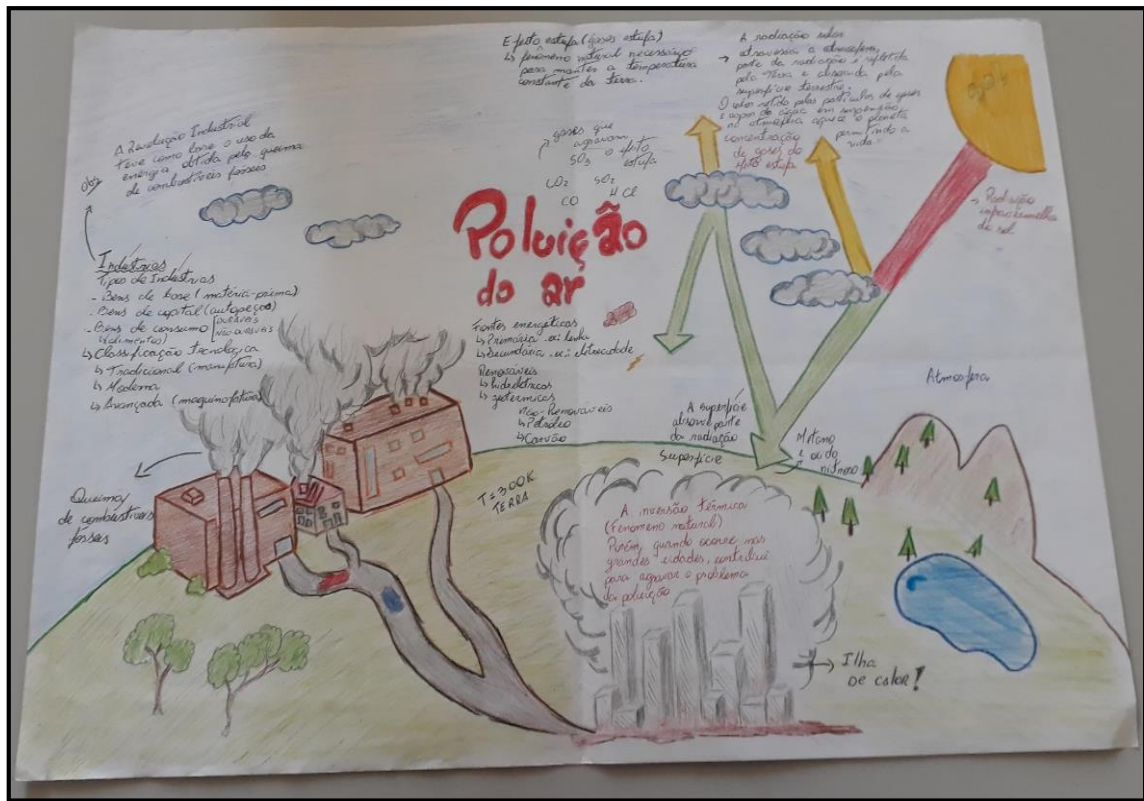 Efeito estufa (gases estufa)
↳ fenômeno natural necessário
para manter a temperatura
constante da terra.
→ A radiação solar
atravessa a atmosfera,
parte da radiação é refletida
pela Terra e absorvida pela
superfície terrestre.
O calor retido pelas partículas de gases
e vapor de água em suspensão
na atmosfera aquece o planeta
permitindo a
vida.
concentração
de gases do
efeito estufa
Sol
→ Radiação
infravermelha
do sol
Obs
A Revolução Industrial
Teve como base o uso da
energia obtida pela queima
de combustíveis fósseis
gases que
agravam
o efeito
estufa
SO3
CO2
SO2
CO
HCl
Poluição
do ar
Indústrias
Tipos de Indústrias
- Bens de base (matéria-prima)
- Bens de capital (autopeças)
- Bens de consumo [DURÁVEIS
NÃO DURÁVEIS
(alimentos)
↳ Classificação tecnológica
↳ Tradicional (manufatura)
↳ Moderna
↳ Avançada (maquinofatura)
Fontes energéticas
↳ Primária - ex: lenha
↳ Secundária - ex: eletricidade
Renováveis
↳ hidrelétricas
↳ geotérmicas
Não-Renováveis
↳ Petróleo
↳ Carvão
Atmosfera
A superfície
absorve parte
da radiação
Superfície
Metano
e
nitroso
Queima
de combustíveis
fósseis
T = 300K
TERRA
A inversão térmica
(Fenomeno natural)
Porém, quando ocorre nas
grandes cidades, contribui
para agravar o problema
da poluição
→ Ilha
DE calor!